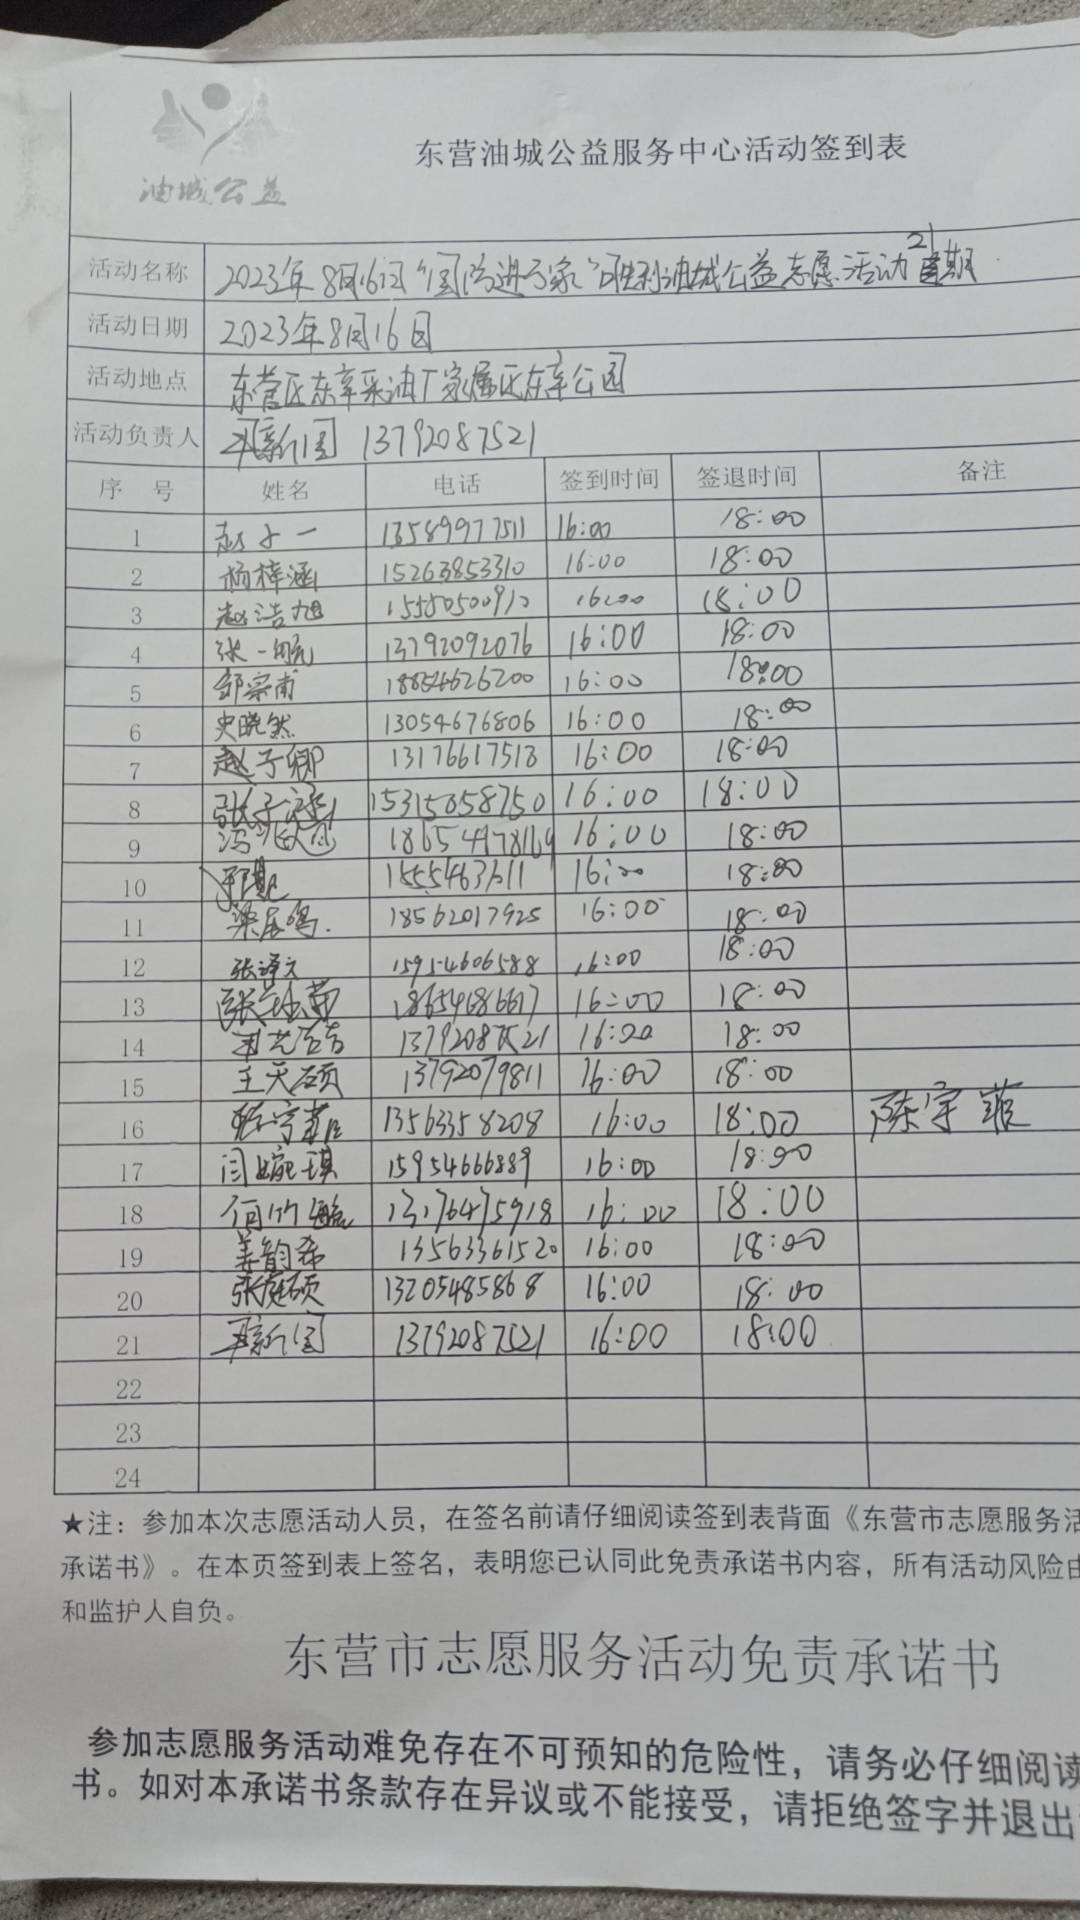 油城公益
东营油城公益服务中心活动签到表
活动名称 2023年8月16日"国学进万家"胜利油城公益志愿活动21期
活动日期 2023年8月16日
活动地点 东营区东辛采油厂家属区东辛公园
活动负责人 新国 13792087521
序 号 姓名 电话 签到时间 签退时间 备注
1 赵子一 13589977511 16:00 18:00
2 杨梓涵 15263853310 16:00 18:00
3 赵浩旭 16:00 18:00
4 张一帆 13792092076 16:00 18:00
5 邹宗甫 18854626200 16:00 18:00
6 史晓然 13054676806 16:00 18:00
7 赵子卿 13176617513 16:00 18:00
8 张子 15315058750 16:00 18:00
9 冯 16:00 18:00
10 16:00 18:00
11 梁展鸣 18562017925 16:00 18:00
12 张泽文 15954606588 16:00 18:00
13 张 18654686617 16:00 18:00
14 13792087521 16:00 18:00
15 王天硕 13792079811 16:00 18:00
16 陈宇菲 13563358208 16:00 18:00 陈宇菲
17 闫婉琪 15954666889 16:00 18:00
18 何竹 13176475918 16:00 18:00
19 姜韵希 13563361520 16:00 18:00
20 张庭硕 13205485868 16:00 18:00
21 新国 13792087521 16:00 18:00
22
23
24
★注：参加本次志愿活动人员，在签名前请仔细阅读签到表背面《东营市志愿服务活
承诺书》。在本页签到表上签名，表明您已认同此免责承诺书内容，所有活动风险由
和监护人自负。
东营市志愿服务活动免责承诺书
参加志愿服务活动难免存在不可预知的危险性，请务必仔细阅读
书。如对本承诺书条款存在异议或不能接受，请拒绝签字并退出